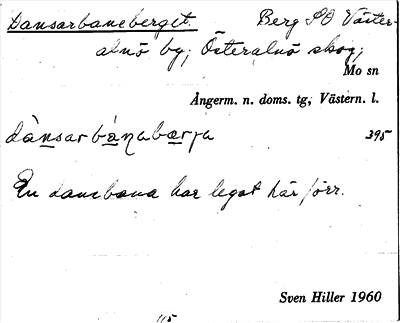 Dansarbaneberget. Berg SO Väster-
alnö by, Österalnö skog,
Mo sn
Ångerm. n. doms. tg, Västern. l.
dànsarbànabærja 395
En dansbana har legat här förr.
Sven Hiller 1960